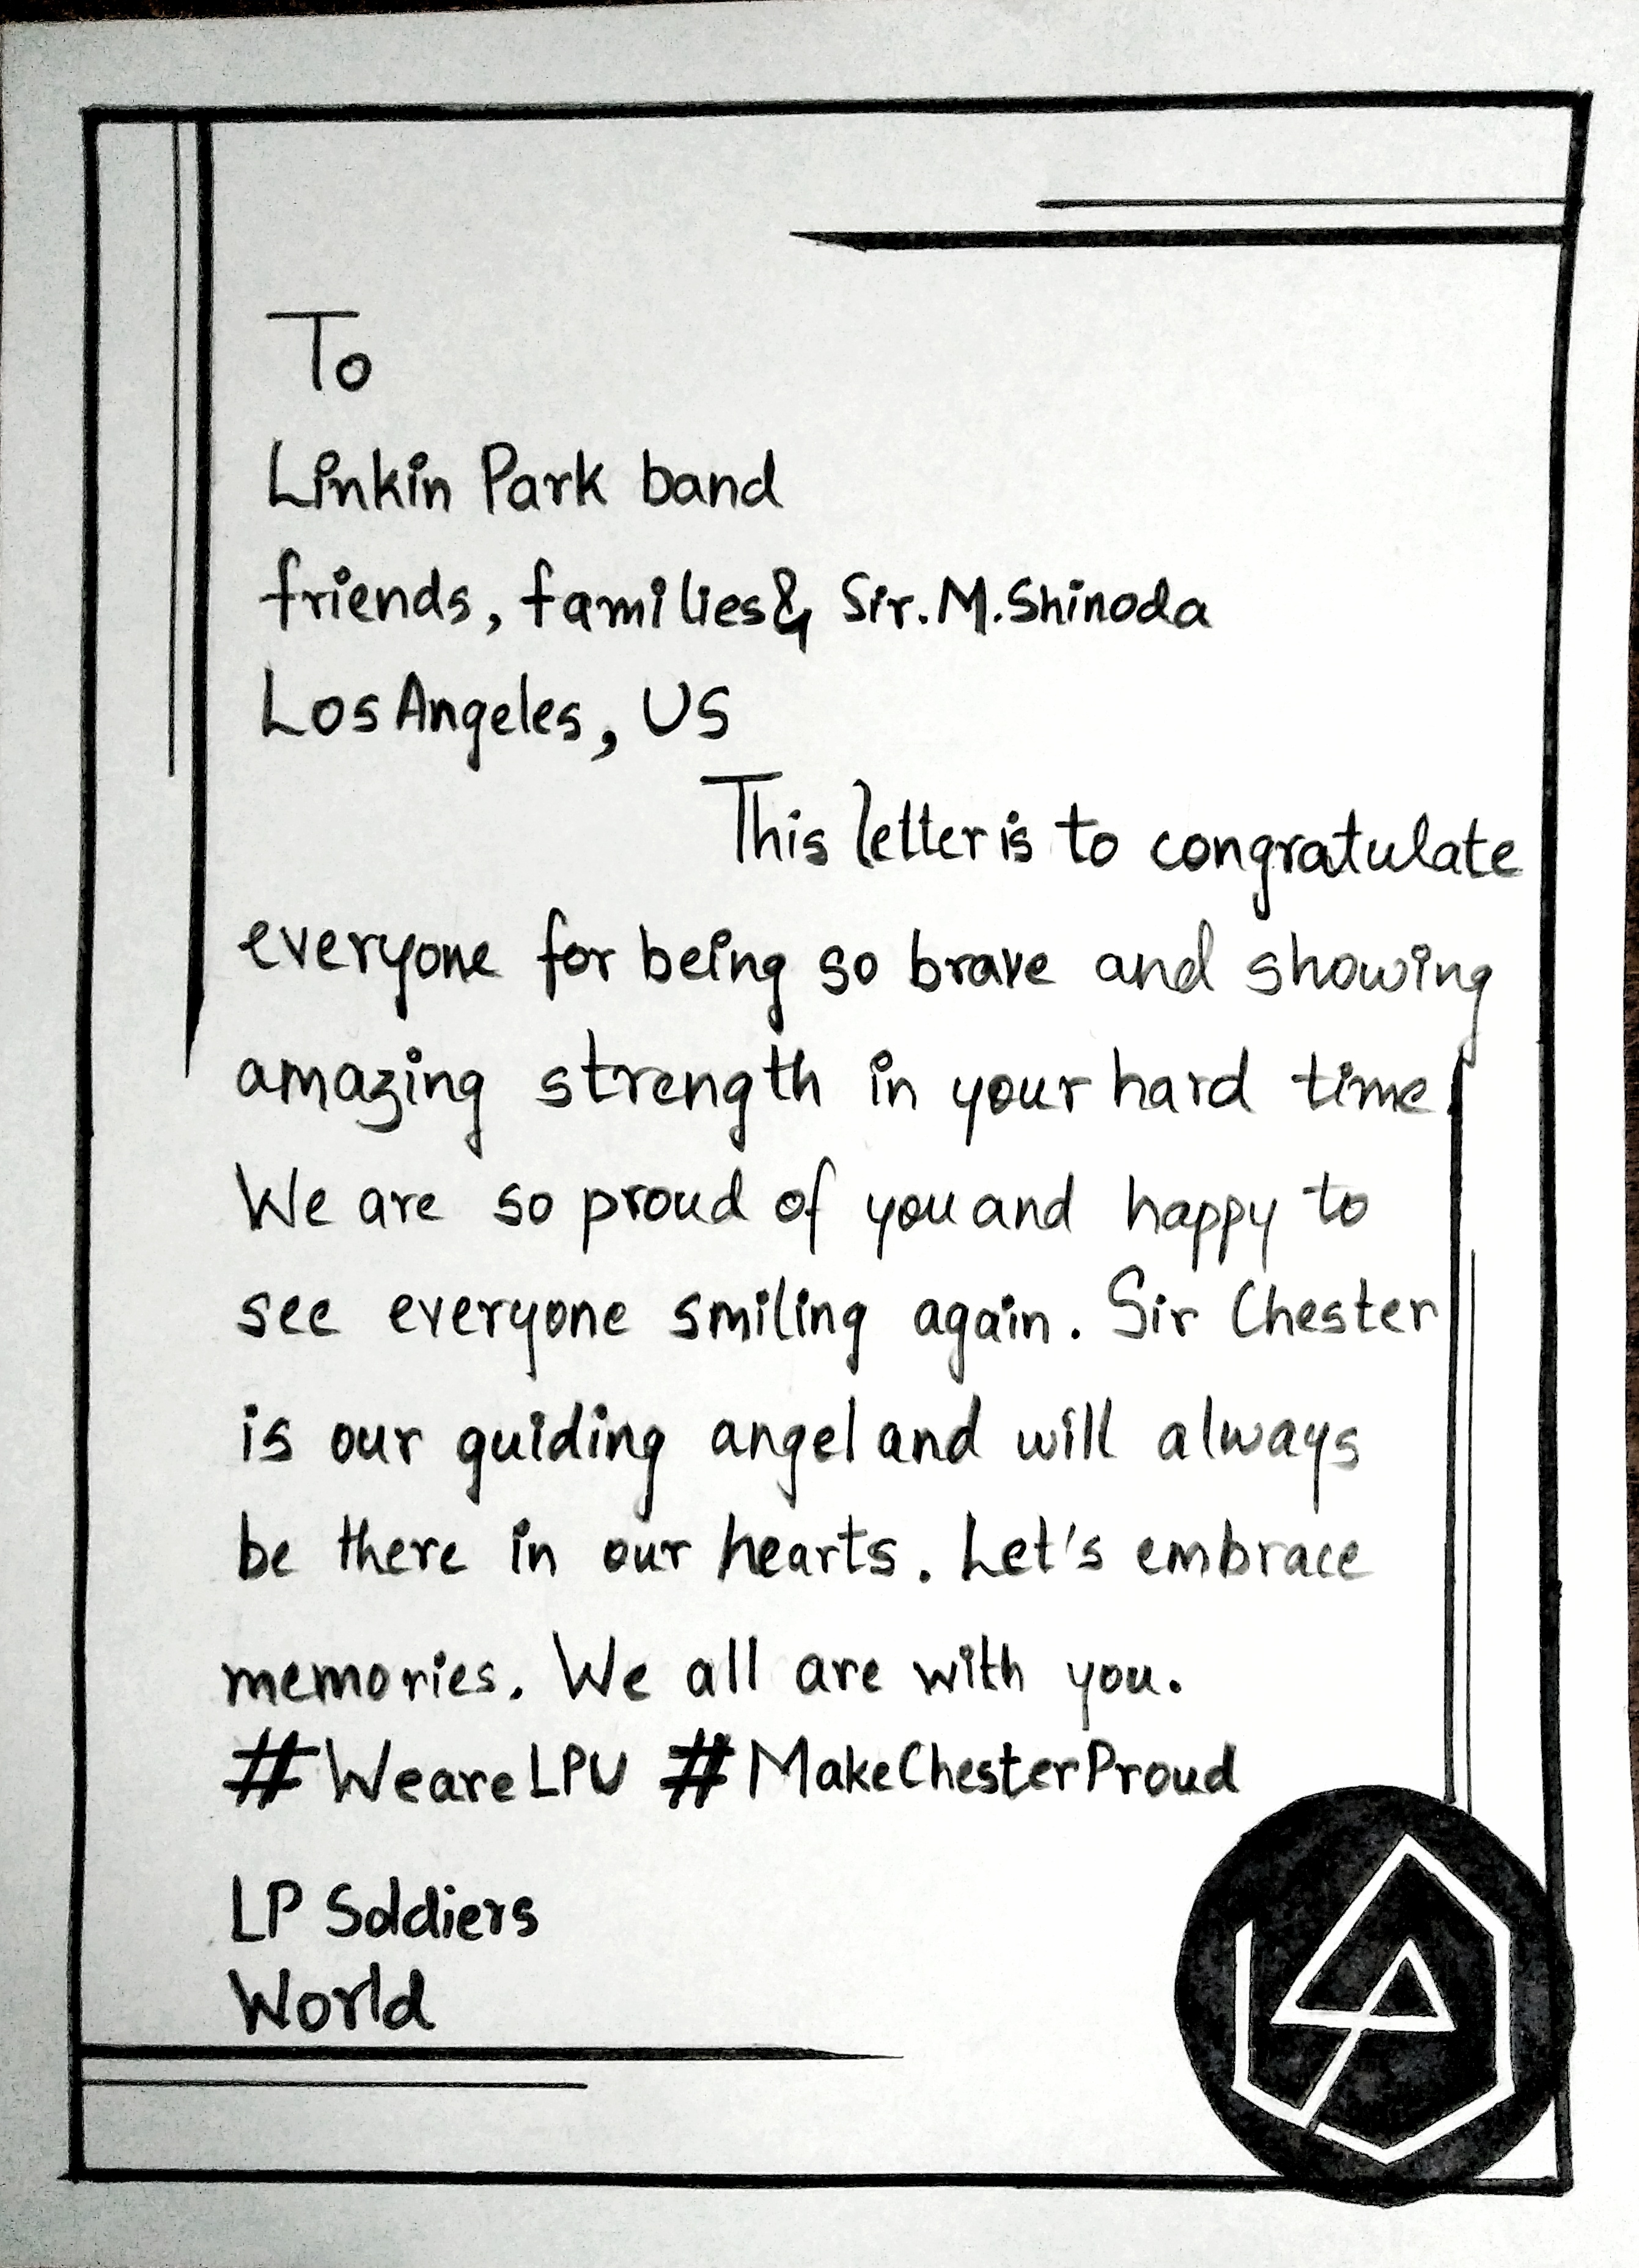 To
Linkin Park band
friends, families & Sir. M. Shinoda
Los Angeles, US
This letter is to congratulate
everyone for being so brave and showing
amazing strength in your hard time.
We are so proud of you and happy to
see everyone smiling again. Sir Chester
is our guiding angel and will always
be there in our hearts. Let's embrace
memories. We all are with you.
#WeareLPU #MakeChesterProud
LP Soldiers
World